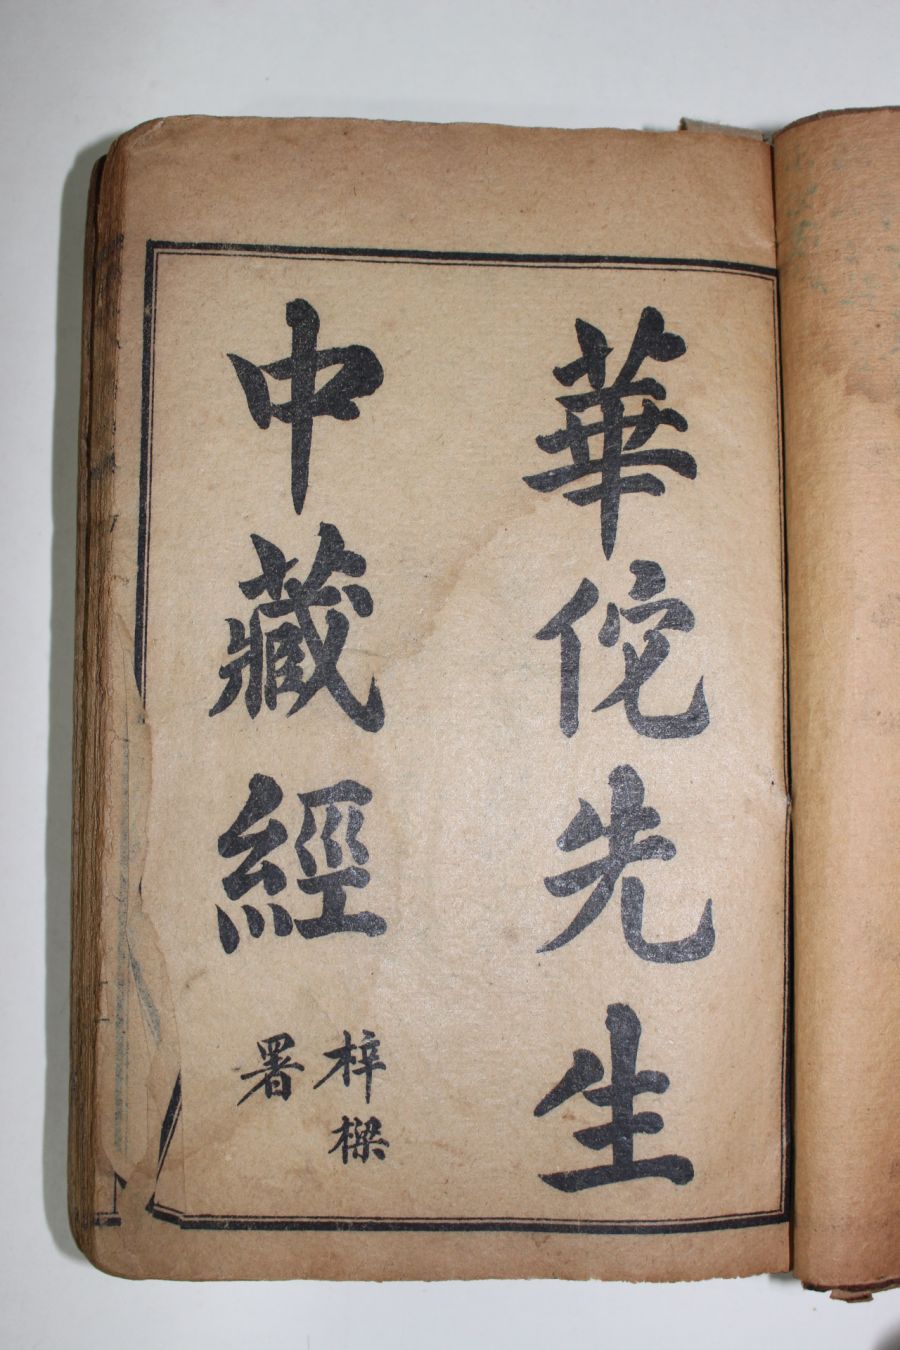 華佗先生
中藏經
梓樑
署